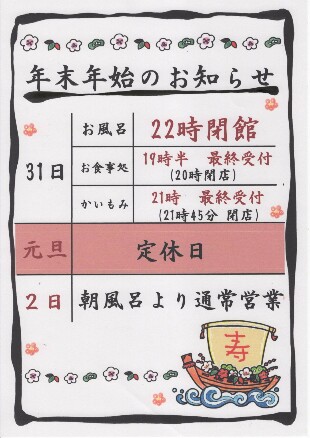 年末年始のお知らせ
31日
お風呂 22時閉館
お食事処 19時半 最終受付
(20時閉店)
かいもみ 21時 最終受付
(21時45分 閉店)
元旦 定休日
2日 朝風呂より通常営業
寿